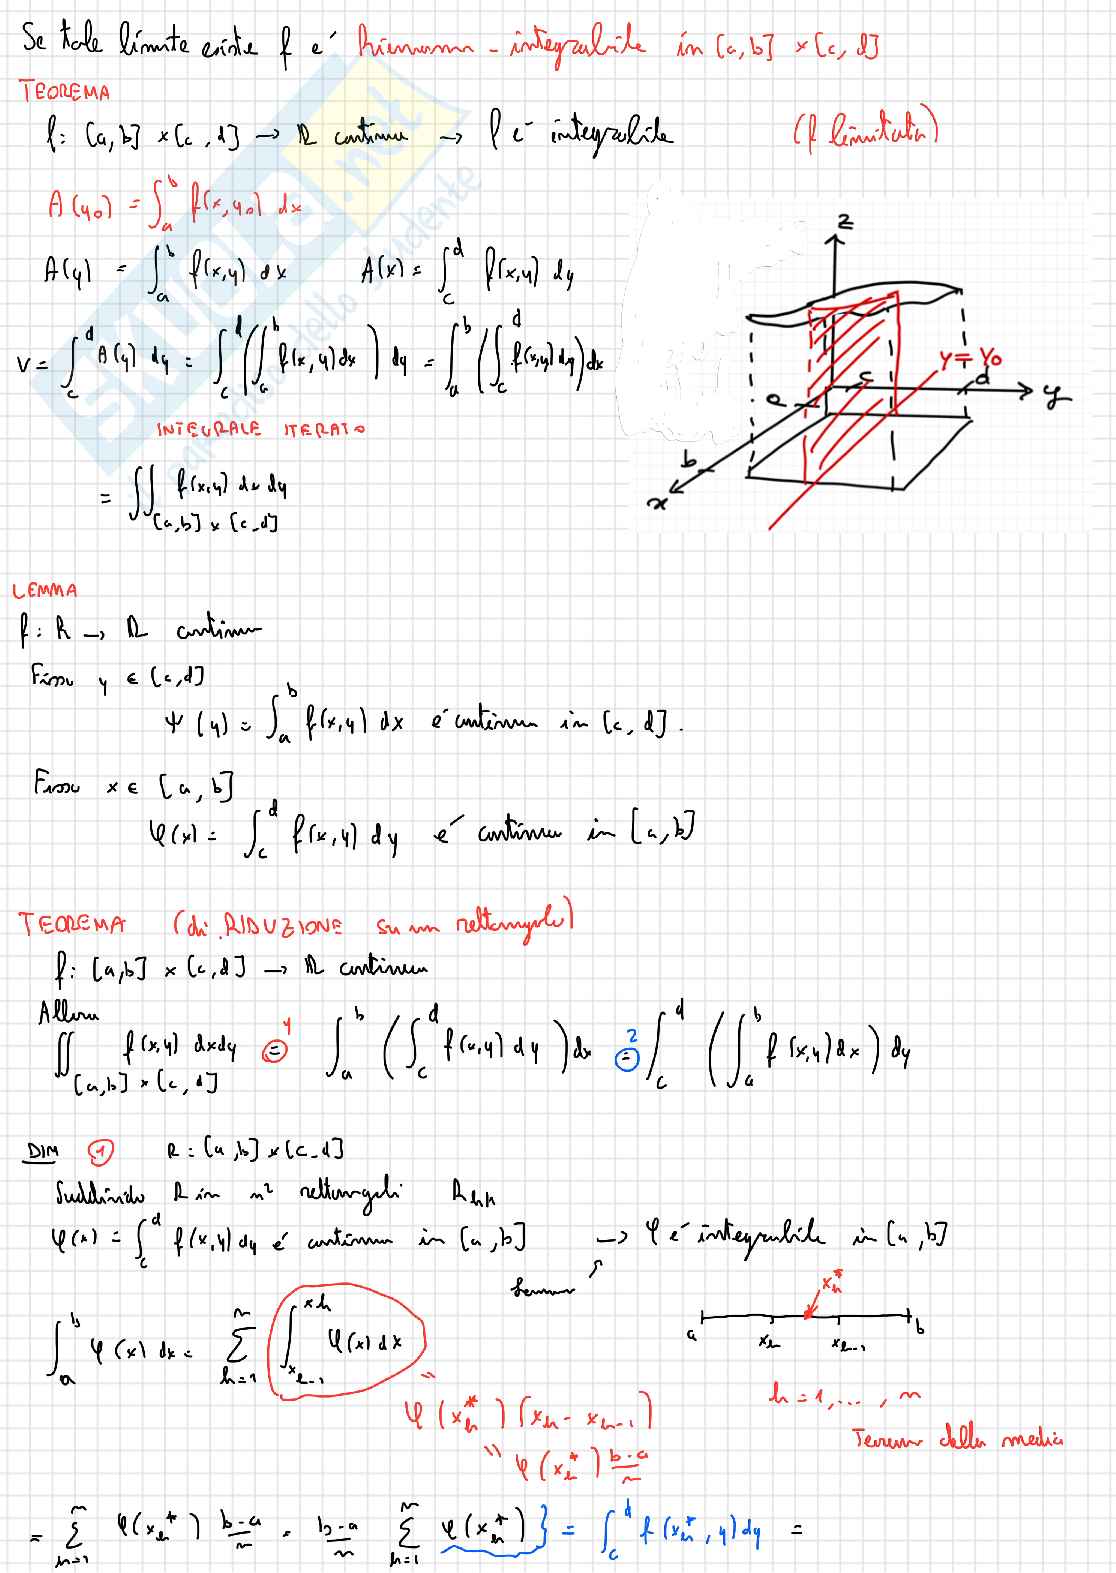 Se tale limite esiste f è Riemann-integrabile in [a,b] x [c,d]
TEOREMA
f: [a,b] x [c,d] → ℝ continua → f è integrabile (f limitata)
A(y₀) = ∫_a^b f(x,y₀) dx
A(y) = ∫_a^b f(x,y) dx A(x) = ∫_c^d f(x,y) dy
V = ∫_c^d A(y) dy = ∫_c^d (∫_a^b f(x,y) dx) dy = ∫_a^b (∫_c^d f(x,y) dy) dx
INTEGRALE ITERATO
= ∬_{[a,b] x [c,d]} f(x,y) dx dy
z
y = y₀
a
c
d
y
b
x
LEMMA
f: R → ℝ continua
Fisso y ∈ [c,d]
Ψ(y) = ∫_a^b f(x,y) dx è continua in [c,d].
Fisso x ∈ [a,b]
φ(x) = ∫_c^d f(x,y) dy è continua in [a,b]
TEOREMA (di RIDUZIONE su un rettangolo)
f: [a,b] x [c,d] → ℝ continua
Allora
∬_{[a,b] x [c,d]} f(x,y) dxdy =^1 ∫_a^b (∫_c^d f(x,y) dy) dx =^2 ∫_c^d (∫_a^b f(x,y) dx) dy
DIM 1 R: [a,b] x [c,d]
Suddivido R in n² rettangoli R_{hk}
φ(x) = ∫_c^d f(x,y) dy è continua in [a,b] → φ è integrabile in [a,b]
lemma
∫_a^b φ(x) dx = ∑_{h=1}^n ∫_{x_{h-1}}^{x_h} φ(x) dx
x_h^*
a x_h x_{h-1} b
" φ(x_h^*) (x_h - x_{h-1})
h = 1, ..., n
" φ(x_h^*) (b-a)/n
Teorema della media
= ∑_{h=1}^n φ(x_h^*) (b-a)/n = (b-a)/n ∑_{h=1}^n φ(x_h^*) } = ∫_c^d f(x_h^*, y) dy =